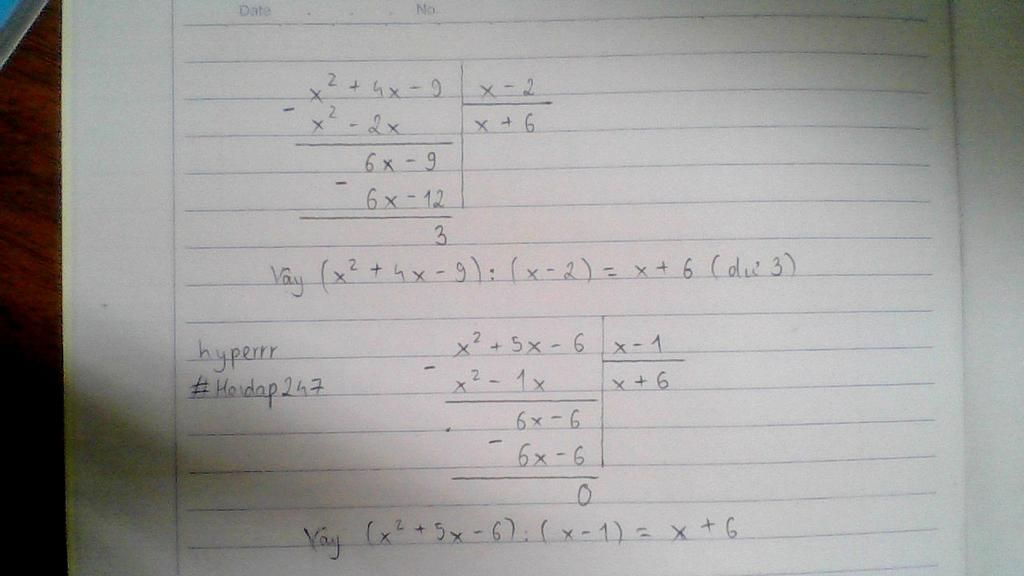 Date . . . No.
x² + 4x - 9 | x - 2
- x² - 2x | x + 6
6x - 9
- 6x - 12
3
Vậy (x² + 4x - 9) : (x - 2) = x + 6 (dư 3)
hyperrr
#Hoidap247
x² + 5x - 6 | x - 1
- x² - 1x | x + 6
6x - 6
- 6x - 6
0
Vậy (x² + 5x - 6) : (x - 1) = x + 6